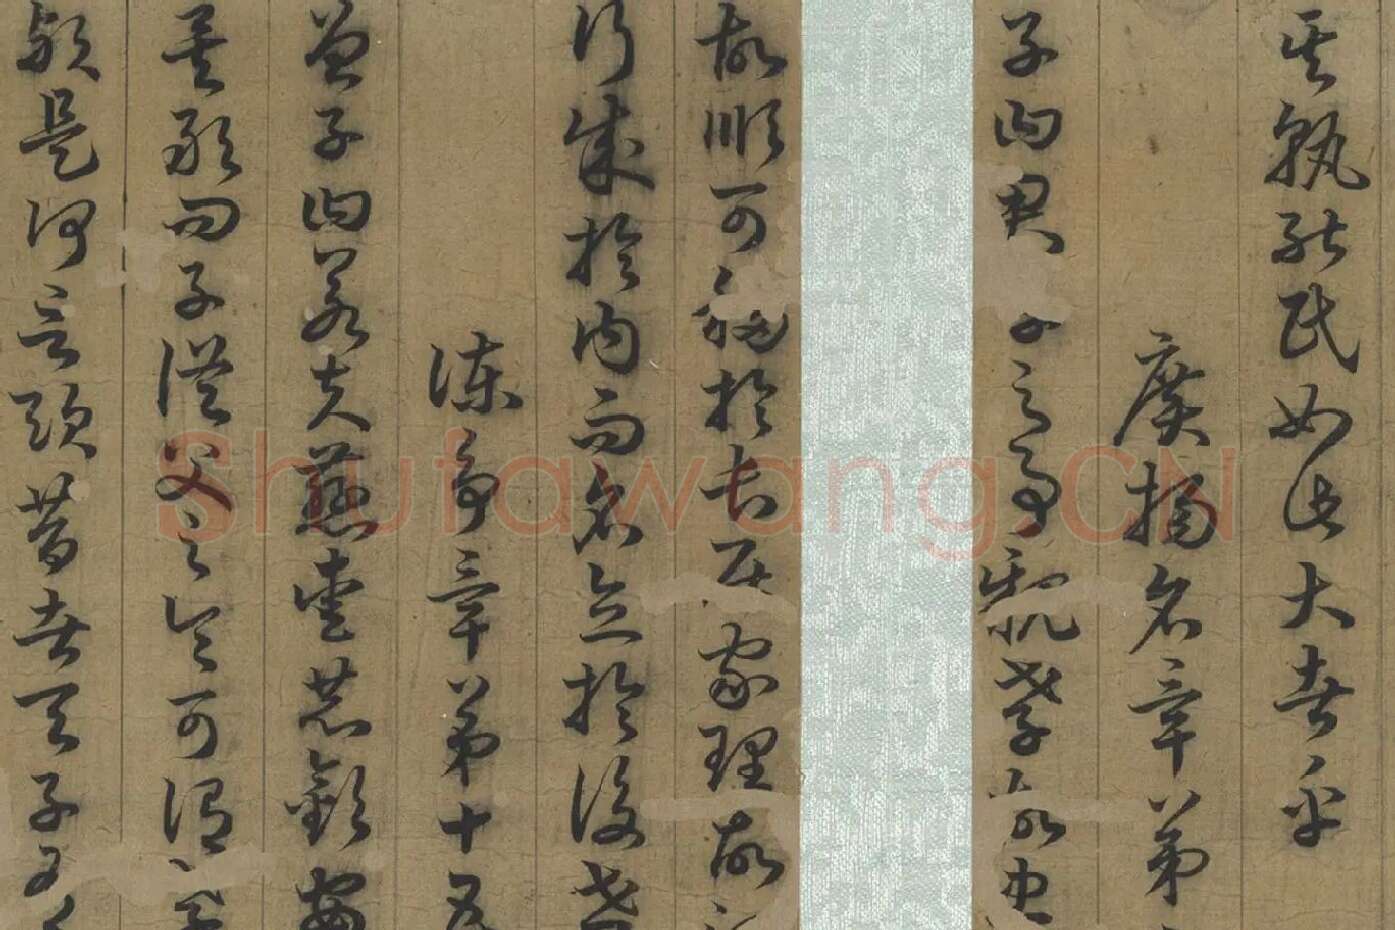 其孰能民如此大者乎
廣揚名章第
子曰君子之事親孝故忠
故順可移於長居家理故
行成於內而名立於後世
諫爭章第十五
曾子曰若夫慈愛恭敬安
矣敢問子從父之令可謂孝
歟是何言歟昔者天子有
Shufawang.CN